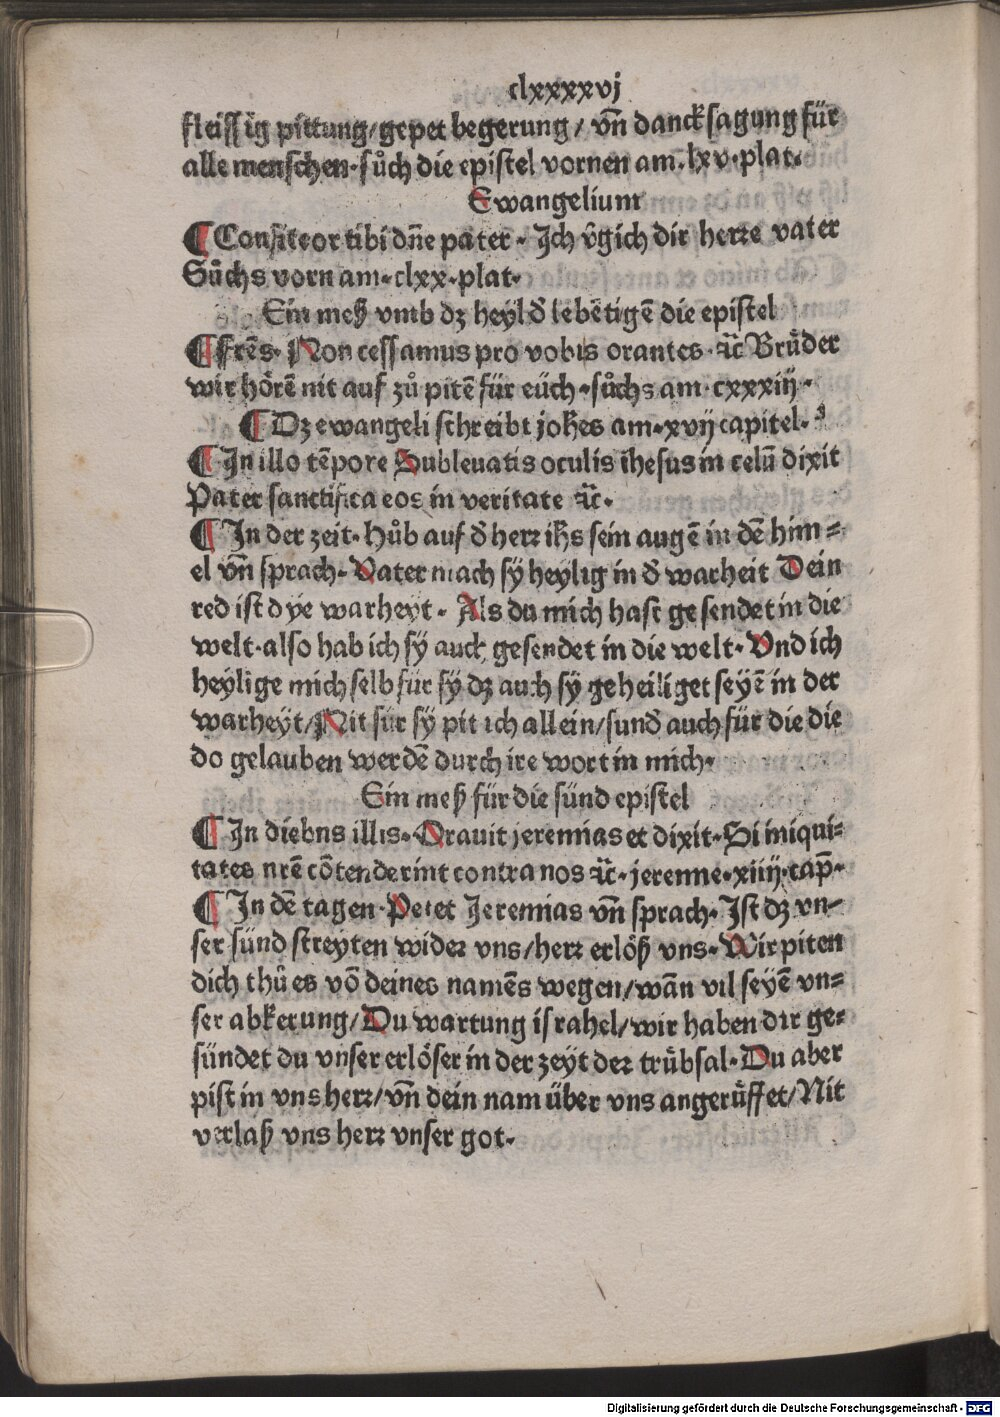 clxxxxvj
fleissig pittung/gepet begerung/ vn̄ dancksagung für
alle menschen·sůch die epistel vornen am·lxv·plat·
Ewangelium
¶ Confiteor tibi dn̄e pater· Ich v̄gich dir herre vater
Sůchs vorn am·clxx·plat·
Ein meß vmb dz heyl d̄ lebētigē die epistel
¶ Frēs· Non cessamus pro vobis orantes·ꝛc̄ Brůder
wir hörē nit auf zů pitē für eüch·sůchs am·cxxxiij·
¶ Dz ewangeli schreibt joh̄es am·xvij capitel·
¶ In illo tēpore Subleuatis oculis ihesus in celū dixit
Pater sanctifica eos in veritate ꝛc̄·
¶ In der zeit· Hůb auf d̄ herr ih̄s sein augē in dē him⸗
el vn̄ sprach· Vater mach sy̋ heylig in d̄ warheit Dein
red ist dye warheyt· Als du mich hast gesendet in die
welt·also hab ich sy̋ auch gesendet in die welt· Vnd ich
heylige mich selb für sy̋ dz auch sy̋ geheiliget seyē in der
warheyt/Nit für sy̋ pit ich allein/sund̄ auch für die die
do gelauben werdē durch ire wort in mich·
Ein meß für die sünd epistel
¶ In diebns illis· Orauit jeremias et dixit· Si iniqui⸗
tates nrē cōtenderint contra nos ꝛc̄·jerenne·xiiij·cap̄·
¶ In dē tagen·Petet Jeremias vn̄ sprach· Ist dz vn⸗
ser sünd streyten wider vns/herr erlöß vns· Wir piten
dich thů es vō deines namēs wegen/wān vil seyē vn⸗
ser abkerung/Du wartung israhel/wir haben dir ge⸗
sündet du vnser erlöser in der zeyt der trůbsal· Du aber
pist in vns herr/vn̄ dein nam über vns angerůffet/Nit
verlaß vns herr vnser got·
Digitalisierung gefördert durch die Deutsche Forschungsgemeinschaft - DFG